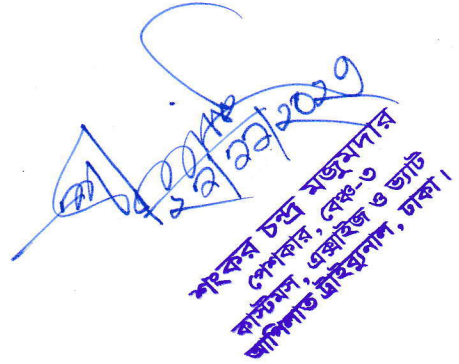 শংকর চন্দ্র মজুমদার
পেশকার, বেঞ্চ-৩
কাস্টমস, এক্সাইজ ও ভ্যাট
আপিলাত ট্রাইব্যুনাল, ঢাকা।